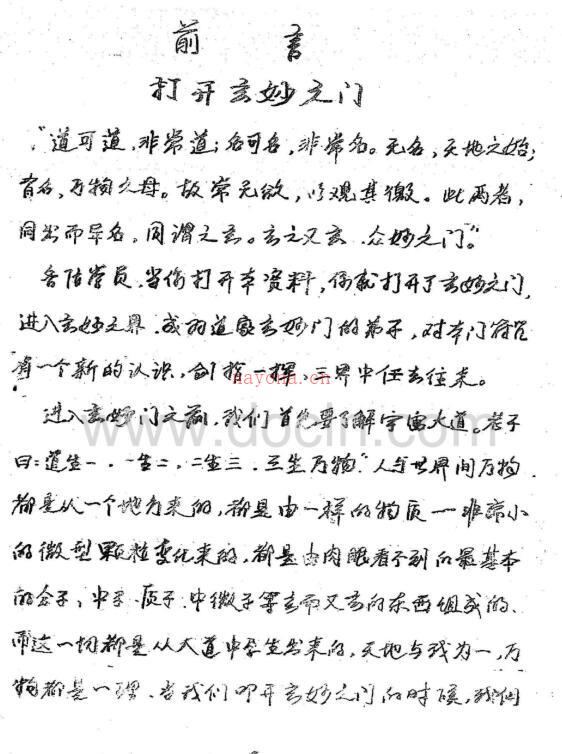 前言
打开玄妙之门
“道可道,非常道;名可名,非常名。无名,天地之始;
有名,万物之母。故常无欲,以观其徼。此两者,
同出而异名,同谓之玄。玄之又玄,众妙之门。”
各位学员,当你打开本资料,你就打开了玄妙之门,
进入玄妙之界,成为道家玄妙门的弟子,对本门符咒
有一个新的认识,剑指一挥,三界中任去往来。
nayona.cn
进入玄妙门之前,我们首先要了解宇宙大道。老子
www.docin.com
曰:道生一,一生二,二生三,三生万物”人与世界间万物
都是从一个地方来的,都是由一样的物质一非常小
的微型颗粒变化来的,都是由肉眼看不到的最基本
的分子,中子,质子,中微子等玄而又玄的东西组成的,
而这一切都是从大道中产生出来的,天地与我为一,万
物都是一理,当我们叩开玄妙之门的时候,我们